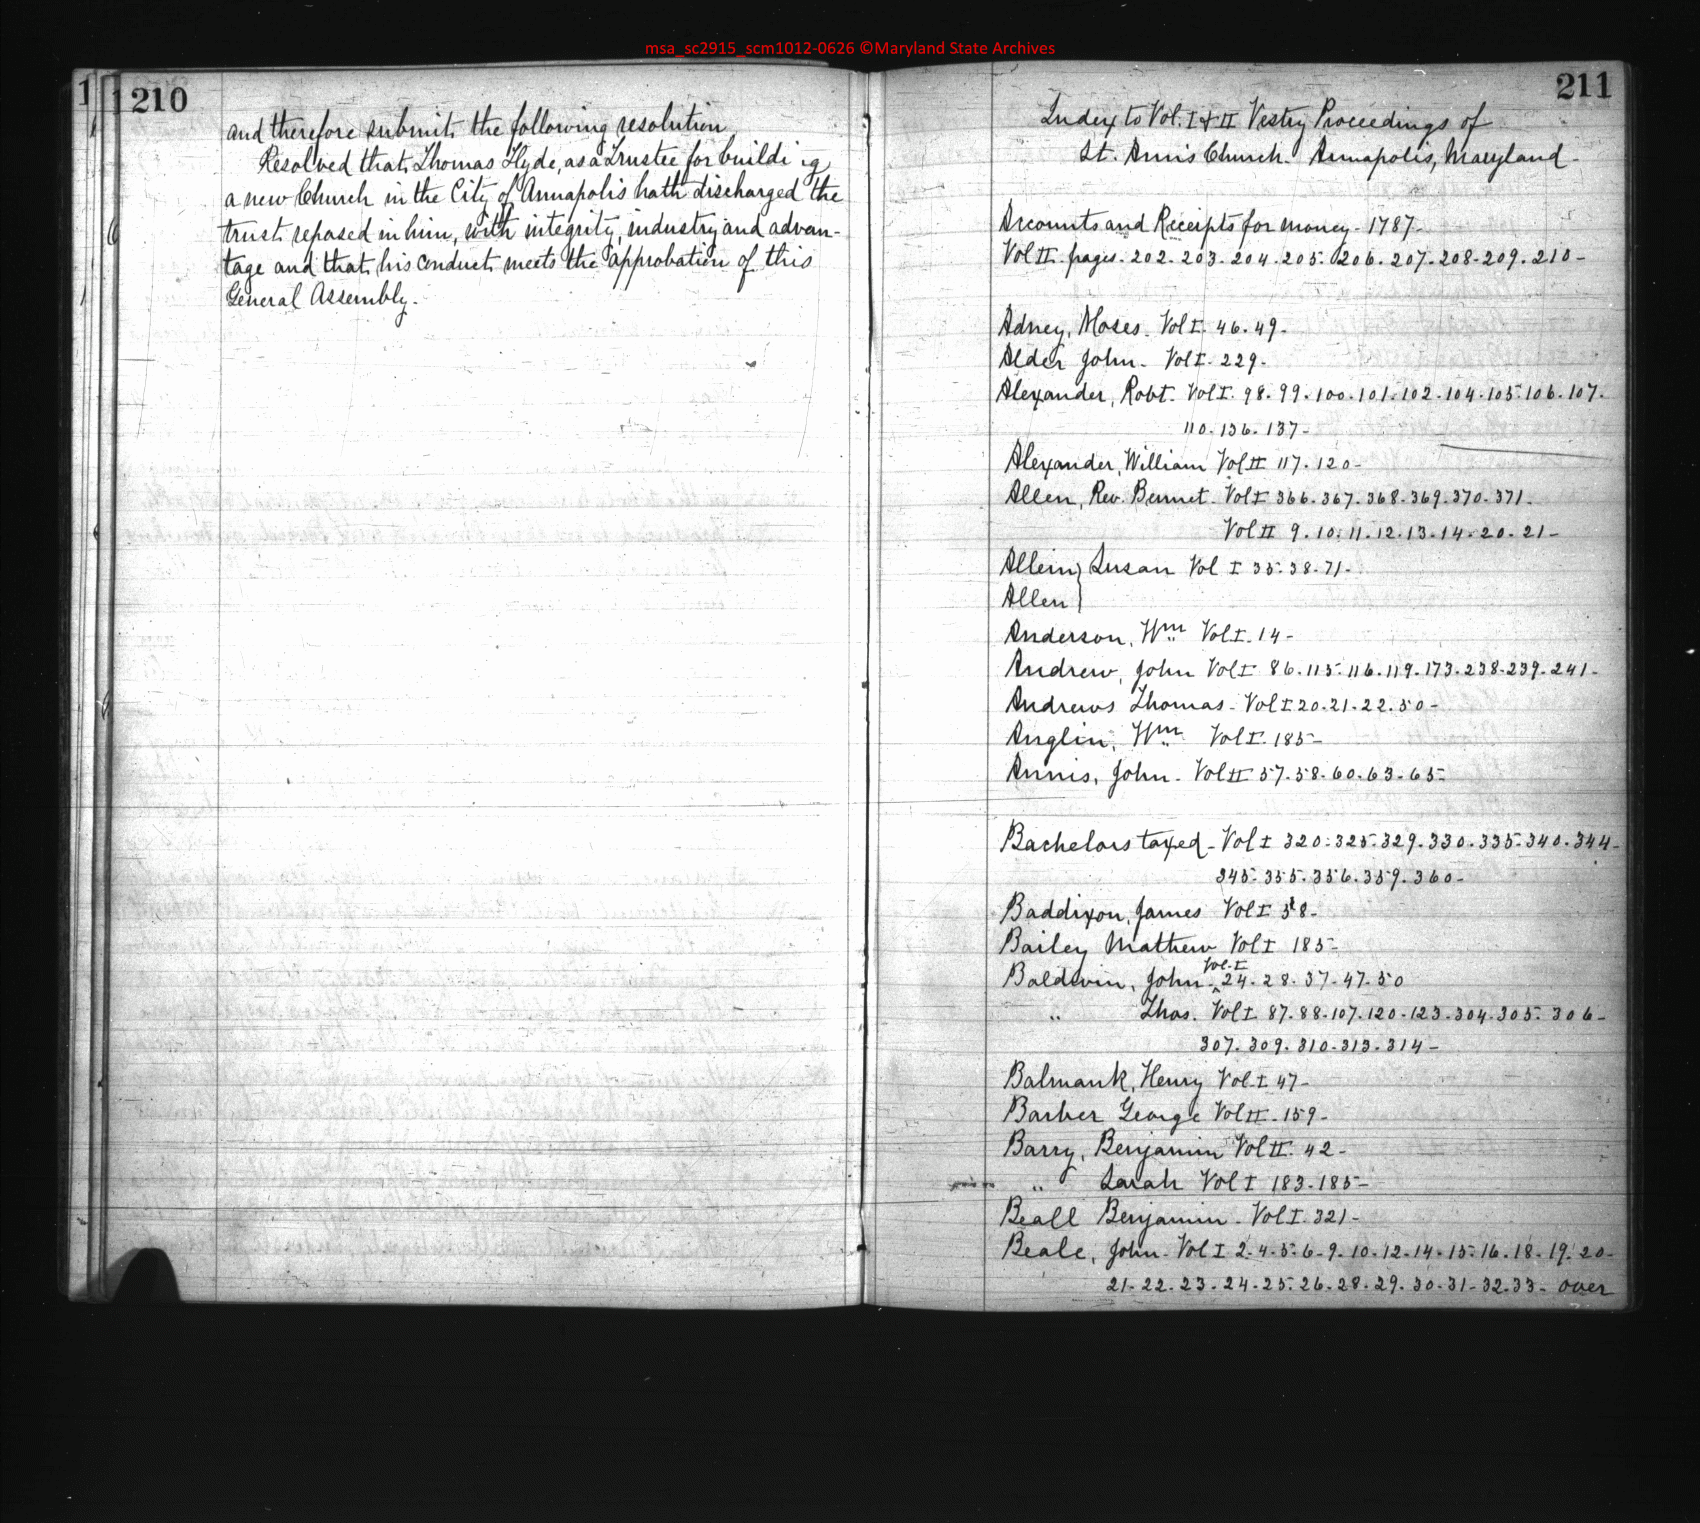 msa_sc2915_scm1012-0626 ©Maryland State Archives
1 210
and therefore submit the following resolution
Resolved that Thomas Hyde, as a Trustee for building
a new Church in the City of Annapolis hath discharged the
trust reposed in him, with integrity, industry and advan-
tage and that his conduct meets the approbation of this
General Assembly.
211
Index to Vol. I & II Vestry Proceedings of
St. Ann's Church. Annapolis, Maryland-
Accounts and Receipts for money - 1787-
Vol II. pages. 202. 203. 204. 205. 206. 207. 208. 209. 210-
Adney, Moses. Vol I. 46. 49-
Alder John- Vol I. 229-
Alexander, Robt. Vol I. 98. 99. 100. 101. 102. 104. 105. 106. 107.
110. 136. 137-
Alexander, William Vol II 117. 120-
Allen, Rev. Bennet. Vol I 366. 367. 368. 369. 370. 371.
Vol II 9. 10. 11. 12. 13. 14. 20. 21-
Allein} Susan Vol I 35. 38. 71-
Allen}
Anderson, Wm Vol I. 14-
Andrew, John Vol I 86. 115. 116. 119. 173. 238. 239. 241-
Andrews Thomas- Vol I 20. 21. 22. 50-
Anglin, Wm Vol I. 185-
Annis, John- Vol II 57. 58. 60. 63. 65-
Bachelors taxed- Vol I 320. 325. 329. 330. 335. 340. 344-
345. 355. 356. 359. 360-
Baddixon, James Vol I 38-
Bailey Mathew Vol I 185-
Vol. I
Baldwin, John. ^24. 28. 37. 47. 50
" Thos. Vol I 87. 88. 107. 120. 123. 304. 305. 306-
307. 309. 310. 313. 314-
Balmank, Henry Vol. I 47-
Barber George Vol II. 159-
Barry, Benjamin Vol II. 42-
" Sarah Vol I 183. 185-
Beall Benjamin- Vol I. 321-
Beale, John- Vol I 2. 4. 5. 6. 9. 10. 12. 14. 15. 16. 18. 19. 20-
21. 22. 23. 24. 25. 26. 28. 29. 30. 31. 32. 33- over